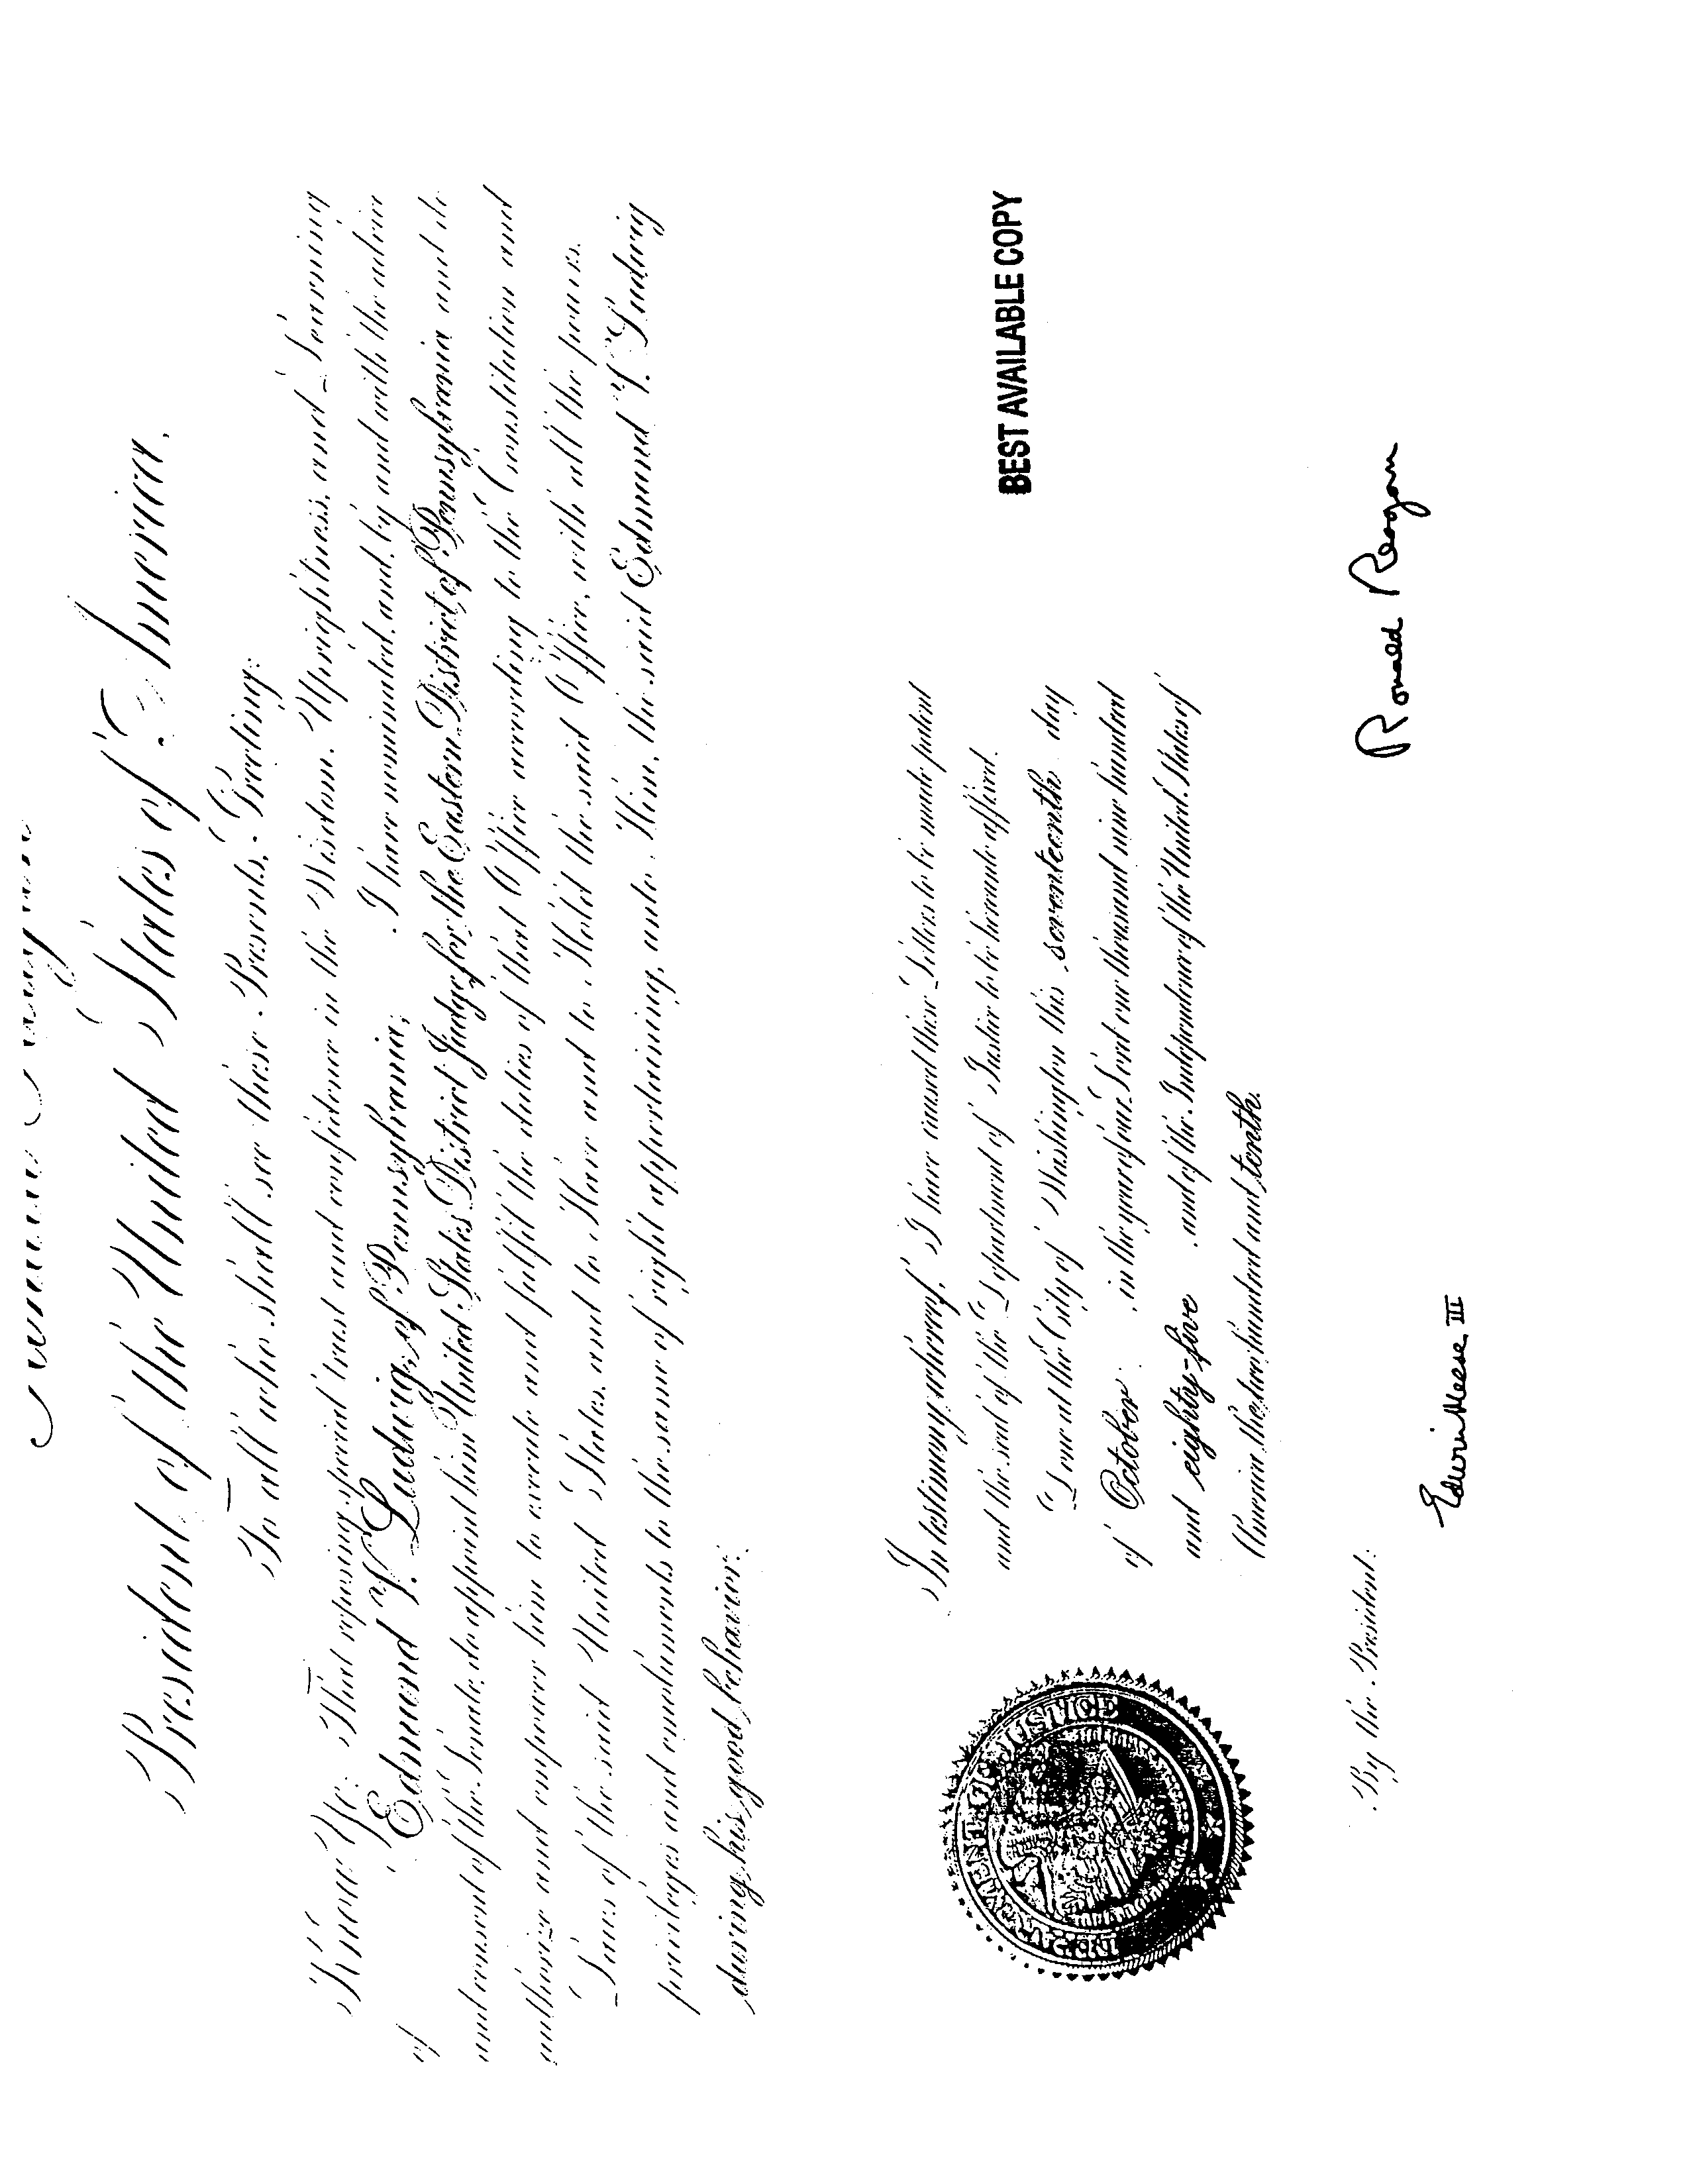 Ronald Reagan
President of the United States of America.
To all who shall see these Presents, Greeting:
Know Ye; That reposing special trust and confidence in the Wisdom, Uprightness, and Learning
of Edmund V. Ludwig, of Pennsylvania, I have nominated, and, by and with the advice
and consent of the Senate, do appoint him United States District Judge for the Eastern District of Pennsylvania and do
authorize and empower him to execute and fulfil the duties of that Office according to the Constitution and
Laws of the said United States, and to Have and to Hold the said Office, with all the powers,
privileges and emoluments to the same of right appertaining, unto Him, the said Edmund V. Ludwig
during his good behavior.
BEST AVAILABLE COPY
In testimony whereof, I have caused these Letters to be made patent
and the seal of the Department of Justice to be hereunto affixed.
Done at the City of Washington this seventeenth day
of October in the year of our Lord one thousand nine hundred
and eighty-five and of the Independence of the United States of
America the two hundred and tenth.
DEPARTMENT OF JUSTICE
Ronald Reagan
By the President:
Edwin Meese III